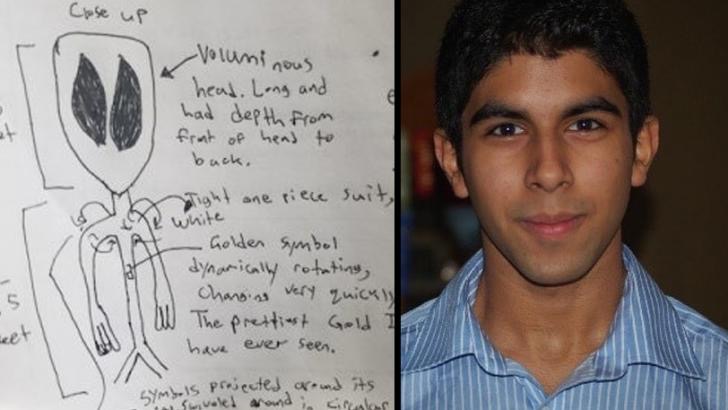 Close up
Voluminous
head. Long and
had depth from
front of head to
back.
Tight one piece suit,
white
Golden symbol
dynamically rotating,
Changing very quickly
The prettiest Gold I
have ever seen.
5
eet
Symbols projected around its
swiveled around in circular